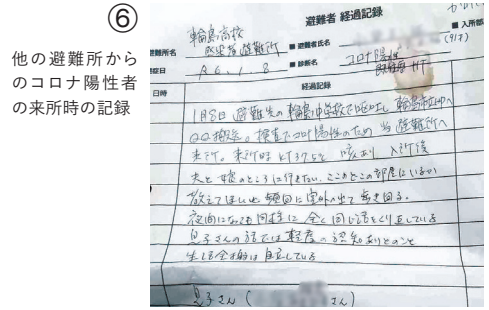 ⑥
他の避難所から
のコロナ陽性者
の来所時の記録
避難者 経過記録
輪島高校
感染者避難所
■避難者氏名
■入所部
(91才)
R6.1.8
■診断名
コロナ陽性
既往歴 HT
日時
経過記録
1月8日 避難先の輪島中学校で嘔吐し 輪島市立HPへ
QQ搬送。検査でコロナ陽性のため 当避難所へ
来所。来所時 KT37.5℃ 咳あり 入所後
夫と娘のところに行きたい、ここのどこの部屋にいるか
教えてほしいと 頻回に室外へ出て歩き回る。
夜間になっても同様に 全く同じ話をくり返している
息子さんの話では 軽度の認知ありとのこと
生活全般は自立している
息子さん (
さん)